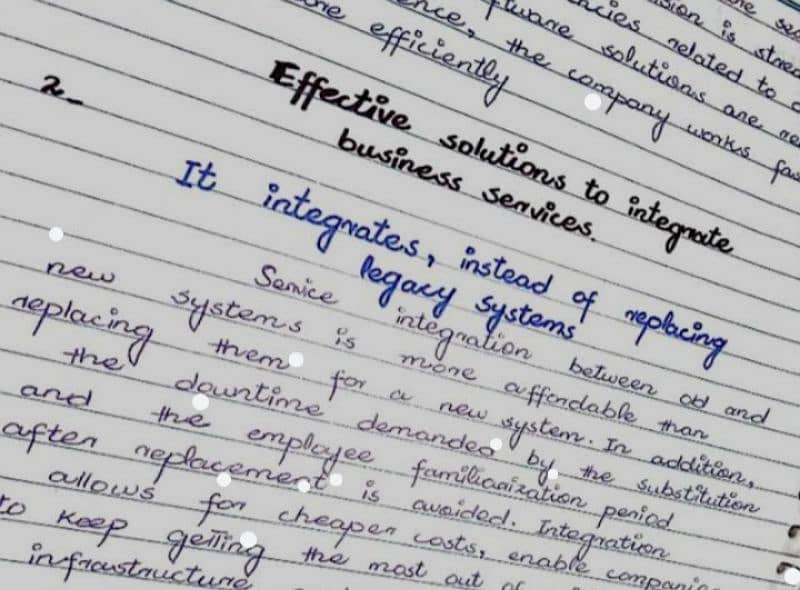 sion is strea
ncies related to
ftware solutions are
ence, the company works fas
efficiently
2-
Effective solutions to integrate
business services.
It integrates, instead of replacing
legacy systems
Service integration between old and
new systems is more affordable than
replacing them for a new system. In addition,
the downtime demanded by the substitution
and the employee familiarization period
after replacement is avoided. Integration
allows for cheaper costs, enable companies
to keep getting the most out of
infraustructure